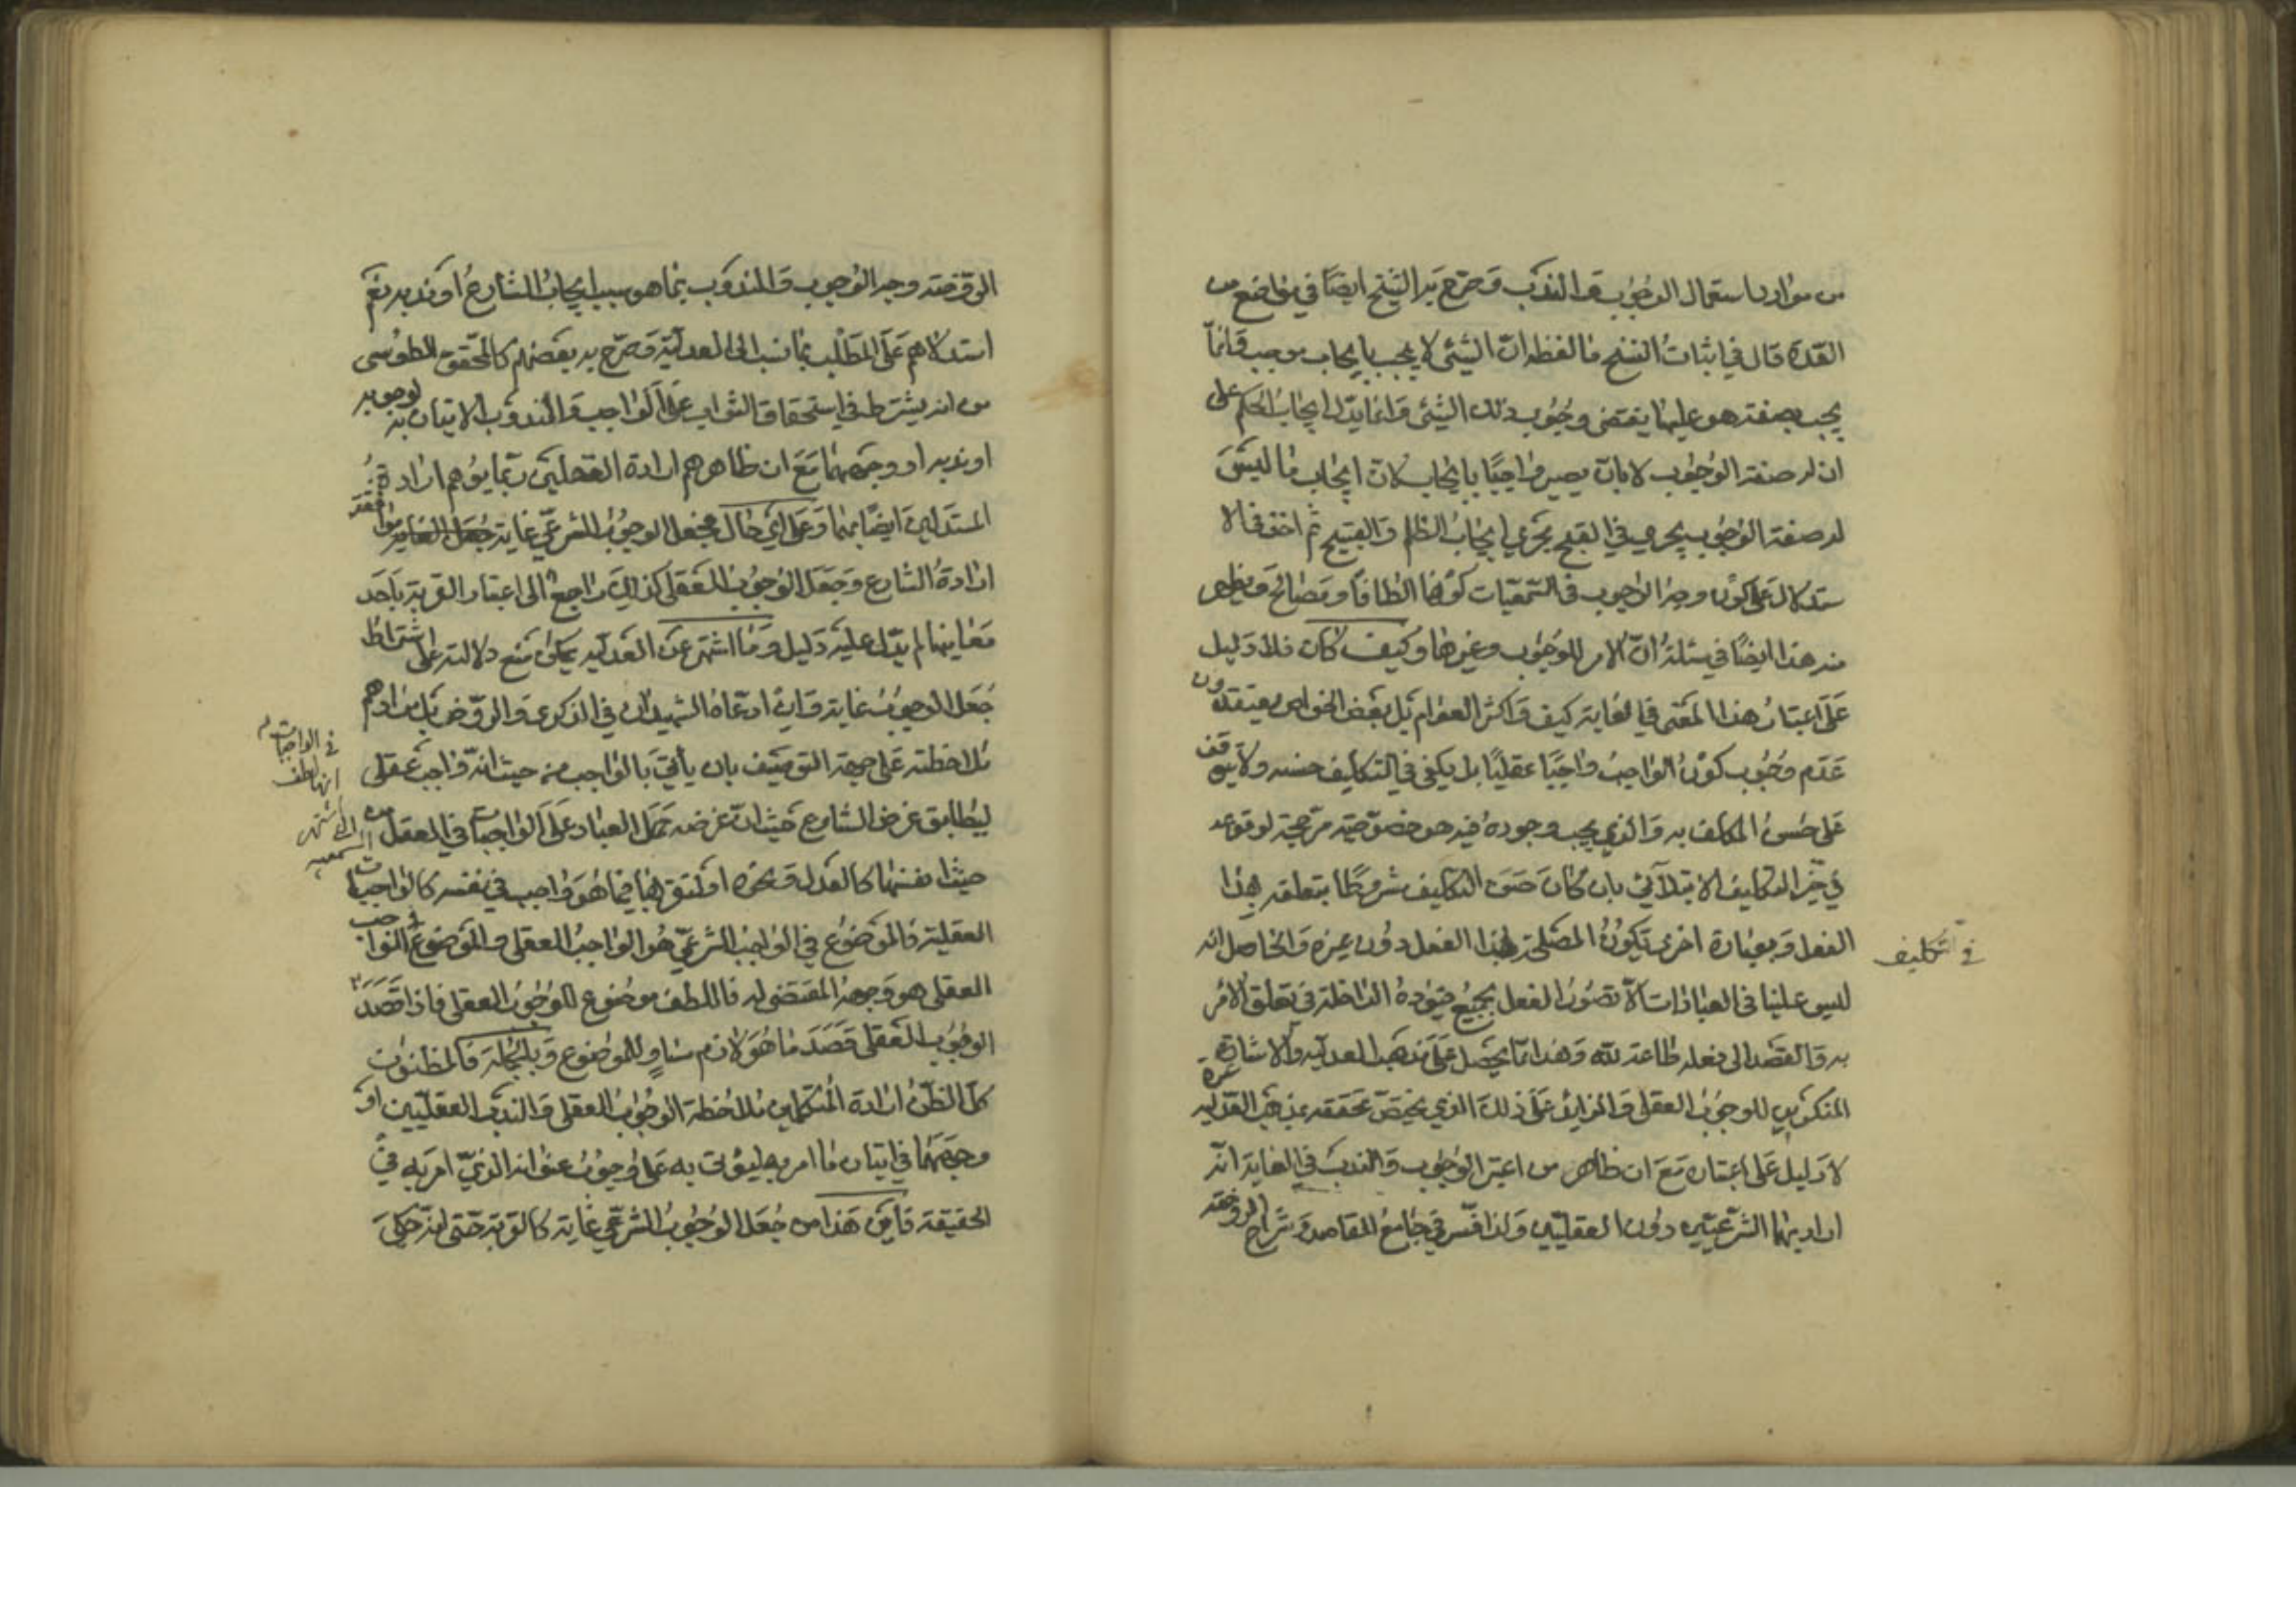 من موارد استعمال الوجوب والندب وصرح به الشيخ ايضاً في مواضع من
العدة قال في اثبات النسخ ما لفظه ان الشيئ لا يجب بايجاب موجب وانما
يجب بصفة هو عليها يقتضى وجوب ذلك الشيئ وانما يدل ايجاب الحكم على
ان له صفة الوجوب لا بان يصير واجباً بايجابه لان ايجاب ما ليس
له صفة الوجوب يجرى في القبح مجرى ايجاب الظلم والقبيح ثم اخذ في الا
ستدلال على كون وجه الوجوب في السمعيات كونها الطافاً ومصالح ويظهر
منه هذا ايضاً في مسئلة ان الامر للوجوب وغيرها وكيف كان فلا دليل
على اعتبار هذا المعنى في الغاية كيف واكثر العوام بل بعض الخواص يعتقدون
عدم وجوب كون الواجب واجباً عقلياً بل يكفى في التكليف حسنه ولا يتوقف
على حسن المكلف به والذي يجب وجوده فيه هو خصوصية مرجحة لوقوعه
في حيز التكليف الابتلائي بان كان حسن التكليف مشروطا بتعلقه بهذا
الفعل وبعبارة اخرى تكون المصلحة لهذا الفعل دون غيره والحاصل انه
في التكليف
ليس علينا في العبادات الا تصور الفعل بجميع قيوده الداخلة في تعلق الامر
به والقصد الى فعله طاعة لله وهذا مما يحصل على مذهب العدلية والاشاعرة
المنكرين للوجوب العقلى والزايد على ذلك الذي يختص تحققه بمذهب العدلية
لا دليل على اعتباره مع ان ظاهر من اعتبر الوجوب والندب في الغاية انه
اراد بهما الشرعيين دون العقليين ولذا فسر في جامع المقاصد وشرح الروضة
الروضة وجه الوجوب والمندوب بما هو سبب ايجاب الشارع او ندبه نعم
استدلالهم على المطلب بما نسب الى العدلية وصرح به بعضهم كالمحقق الطوسى
من انه يشترط في استحقاق الثواب على الواجب والمندوب الاتيان به لوجوبه
او ندبه او وجههما مع ان ظاهرهم ارادة العقليين ربما يوهم ارادة
المستدلين ايضاً بهما وعلى اي حال فجعل الوجوب الشرعي غاية
ارادة الشارع وجعل الوجوب العقلى كذلك راجع الى اعتبار القربة باحد
معانيها لم يدل عليه دليل وما اشتهر عن العدلية يمكن منع دلالته على اشتراط
جعل الوجوب غاية وان ادعاه الشهيدان في الذكرى والروض بل مرادهم
ملاحظته على جهة التوصيف بان يأتى بالواجب من حيث انه واجب عقلى
في الواجبات
ليطابق غرض الشارع حيث ان غرضه حمل العباد على الواجبات في العقل
حيث انفسها كالعدل ونحوه او لتوقفها فيما هو واجب في نفسه كالواجبات
العقلية فالموضوع في الواجب الشرعي هو الواجب العقلى والموضوع في الواجب
العقلى هو وجهه المقتضى له فاللطف موضوع للوجوب العقلى فاذا قصد
الوجوب العقلى قصد ما هو لازم مساو للموضوع وبالجملة فالمظنون
كل الظن ارادة المتكلمين ملاحظة الوجوب العقلى والندب العقليين او
وجههما في اتيان ما امر به ليؤتى به على وجوب عنوانه الذي امر به في
الحقيقة فاين هذا من جعل الوجوب الشرعي غاية كالقربة حتى انه حكى